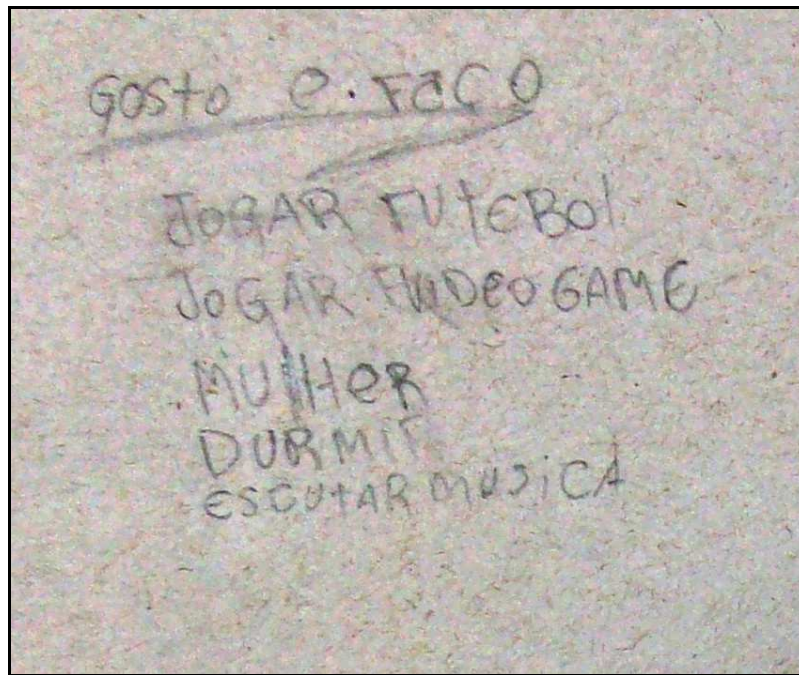 Gosto e. FaÇO
JOGAR FUtEBOl
JOGAR VIDEO GAME
MULHER
DURMIR
ESCUtAR MUSiCA